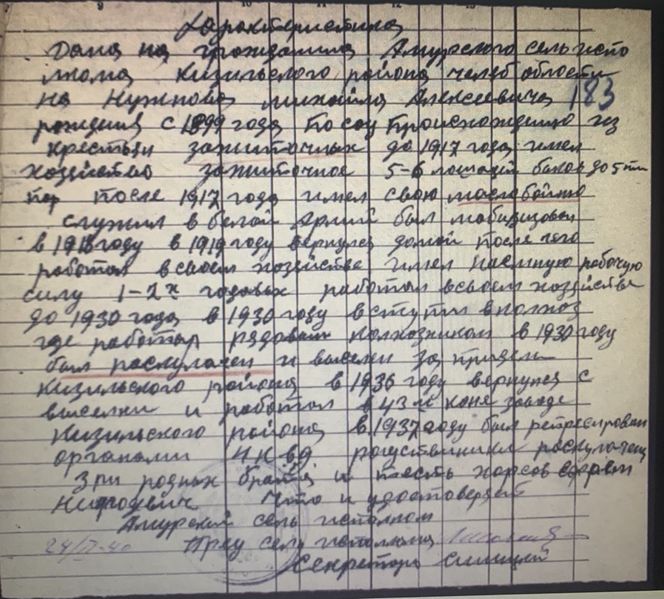 Характеристика
Дана на гражданина Амурского сельиспо
лкома Кизильского района челяб области
на Нужнова михаила Алексеевича 183
рождения с 1899 года По соц Происхождению из
крестьян зажиточных до 1917 года имел
хозяйство зажиточное 5-6 лошадей быков до 5 ти
пар после 1917 года имел свою маслобойню
служил в белой Армии был мобилизован
в 1918 году в 1919 году вернулся домой после чего
работал в своем хозяйстве имел наемную рабочую
силу 1-2х годовых работал в своем хозяйстве
до 1930 года в 1930 году вступил в колхоз
где работал рядовым колхозником в 1930 году
был раскулачен и выселен за пределы
Кизильского района в 1936 году вернулся с
выселки и работал в 43 м коне заводе
Кизильского района в 1937 году был репресирован
органами НКВД родственники раскулачены
3 ри родных брата и тесть
что и удостоверяет
Амурский сель исполком
24/II-40 Пред сель исполкома
Секретарь